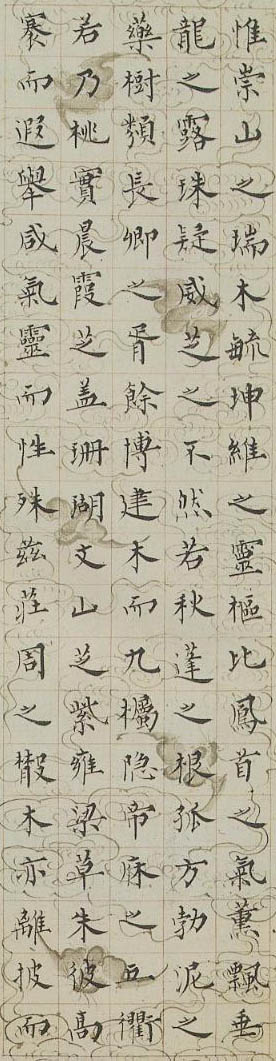 惟崇山之瑞木毓坤維之靈樞比鳳首之氣薰飄垂
龍之露珠疑威芝之不然若秋蓬之根孤方勃泥之
藥樹類長卿之胥餘博建木而九欘隐帝庥之五衢
若乃桃實晨霞芝盖珊湖文山芝紫雍梁草朱彼高
褰而遐舉咸氣靈而性殊兹莊周之散木亦離披而